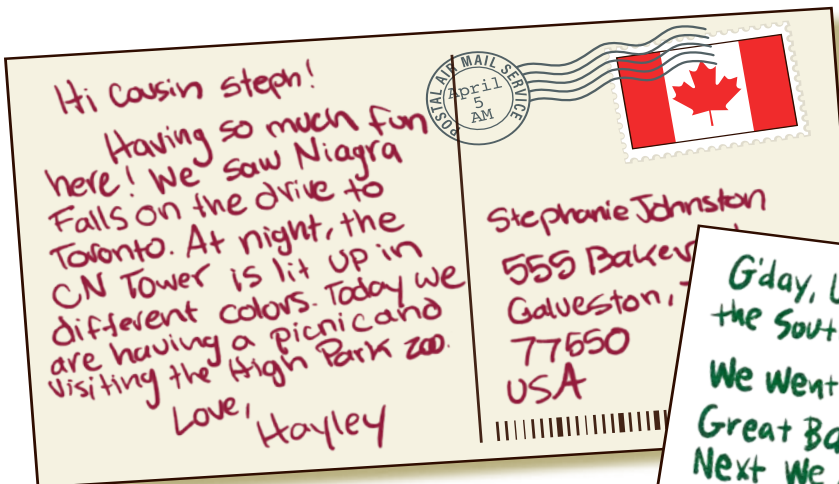 Hi Cousin Steph!
Having so much fun
here! We saw Niagra
Falls on the drive to
Toronto. At night, the
CN Tower is lit up in
different colors. Today we
are having a picnic and
visiting the High Park zoo.
Love,
Hayley
POSTAL AIR MAIL SERVICE
April
5
AM
Stephanie Johnston
555 Baker
Galveston,
77550
USA
G'day,
the Sout
We went
Great Ba
Next we